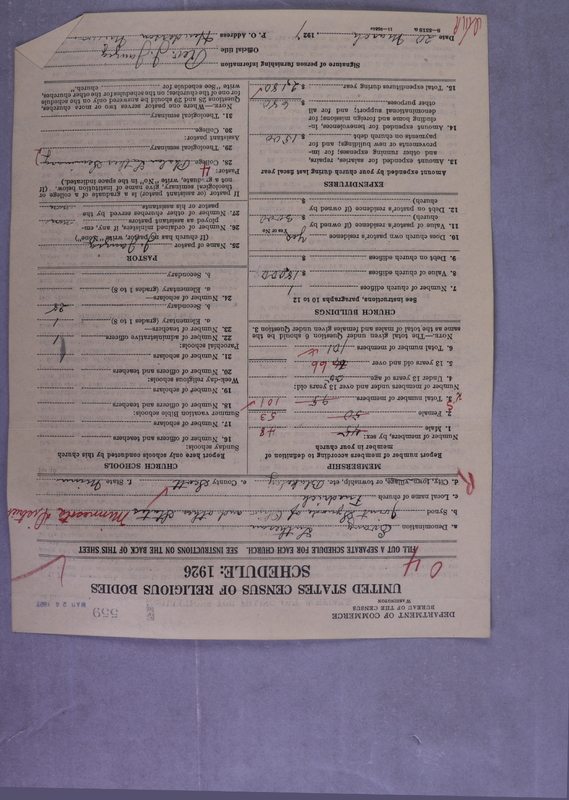 DEPARTMENT OF COMMERCE
BUREAU OF THE CENSUS
WASHINGTON
559
MAR 24 1927
UNITED STATES CENSUS OF RELIGIOUS BODIES
SCHEDULE: 1926
FILL OUT A SEPARATE SCHEDULE FOR EACH CHURCH. SEE INSTRUCTIONS ON THE BACK OF THIS SHEET
a. Denomination Evang. Lutheran
b. Synod Joint Synod of and other States Minnesota District
c. Local name of church Friedrich
d. City, town, village, or township, etc. Blakely e. County Scott f. State Minn
MEMBERSHIP
Report number of members according to definition of member in your church
Number of members, by sex:
1. Male 45 48
2. Female 50 53
3. Total number of members 95 101
Number of members under and over 13 years old:
4. Under 13 years of age 35
5. 13 years old and over 66
6. Total number of members 101
NOTE.—The total number of members given under Question 6 should be the same as the total of males and females given under Question 3.
CHURCH BUILDINGS
See instructions, paragraphs 10 to 12
7. Number of church edifices 1
8. Value of church edifices $ 18000
9. Debt on church edifices $
10. Does church own pastor's residence yes
Yes or No
11. Value of pastor's residence (if owned by church) $ 3000
12. Debt on pastor's residence (if owned by church) $
EXPENDITURES
Amount expended by your church during last fiscal year
13. Amount expended for salaries, repairs, and other running expenses; for improvements or new buildings; and for payments on church debt $ 1500
14. Amount expended for benevolences, including home and foreign missions; for denominational support; and for all other purposes $ 680
15. Total expenditures during year $ 2,180
CHURCH SCHOOLS
Report here only schools conducted by this church
Sunday schools:
16. Number of officers and teachers
17. Number of scholars
Summer vacation Bible schools:
18. Number of officers and teachers
19. Number of scholars
Week-day religious schools:
20. Number of officers and teachers
21. Number of scholars
Parochial schools:
22. Number of administrative officers 1
23. Number of teachers—
a. Elementary (grades 1 to 8) 1
b. Secondary
24. Number of scholars—
a. Elementary (grades 1 to 8) 28
b. Secondary
PASTOR
25. Name of pastor
(If church has no pastor, write "None")
26. Number of ordained ministers, if any, employed as assistants None
27. Number of other churches served by the pastor or his assistants
If pastor (or assistant pastor) is a graduate of a college or theological seminary, give name of institution below. (If not a graduate, write "No" in the space indicated.)
Pastor:
28. College
29. Theological seminary
Assistant pastor:
30. College
31. Theological seminary
NOTE.—Where one pastor serves two or more churches, Questions 25 and 29 should be answered only on the schedule for one of the churches; on the schedules for the other churches, write "See schedule for church."
Signature of person furnishing information
Official title
P. O. Address Henderson
Date 20 March, 1927
8—5518 a